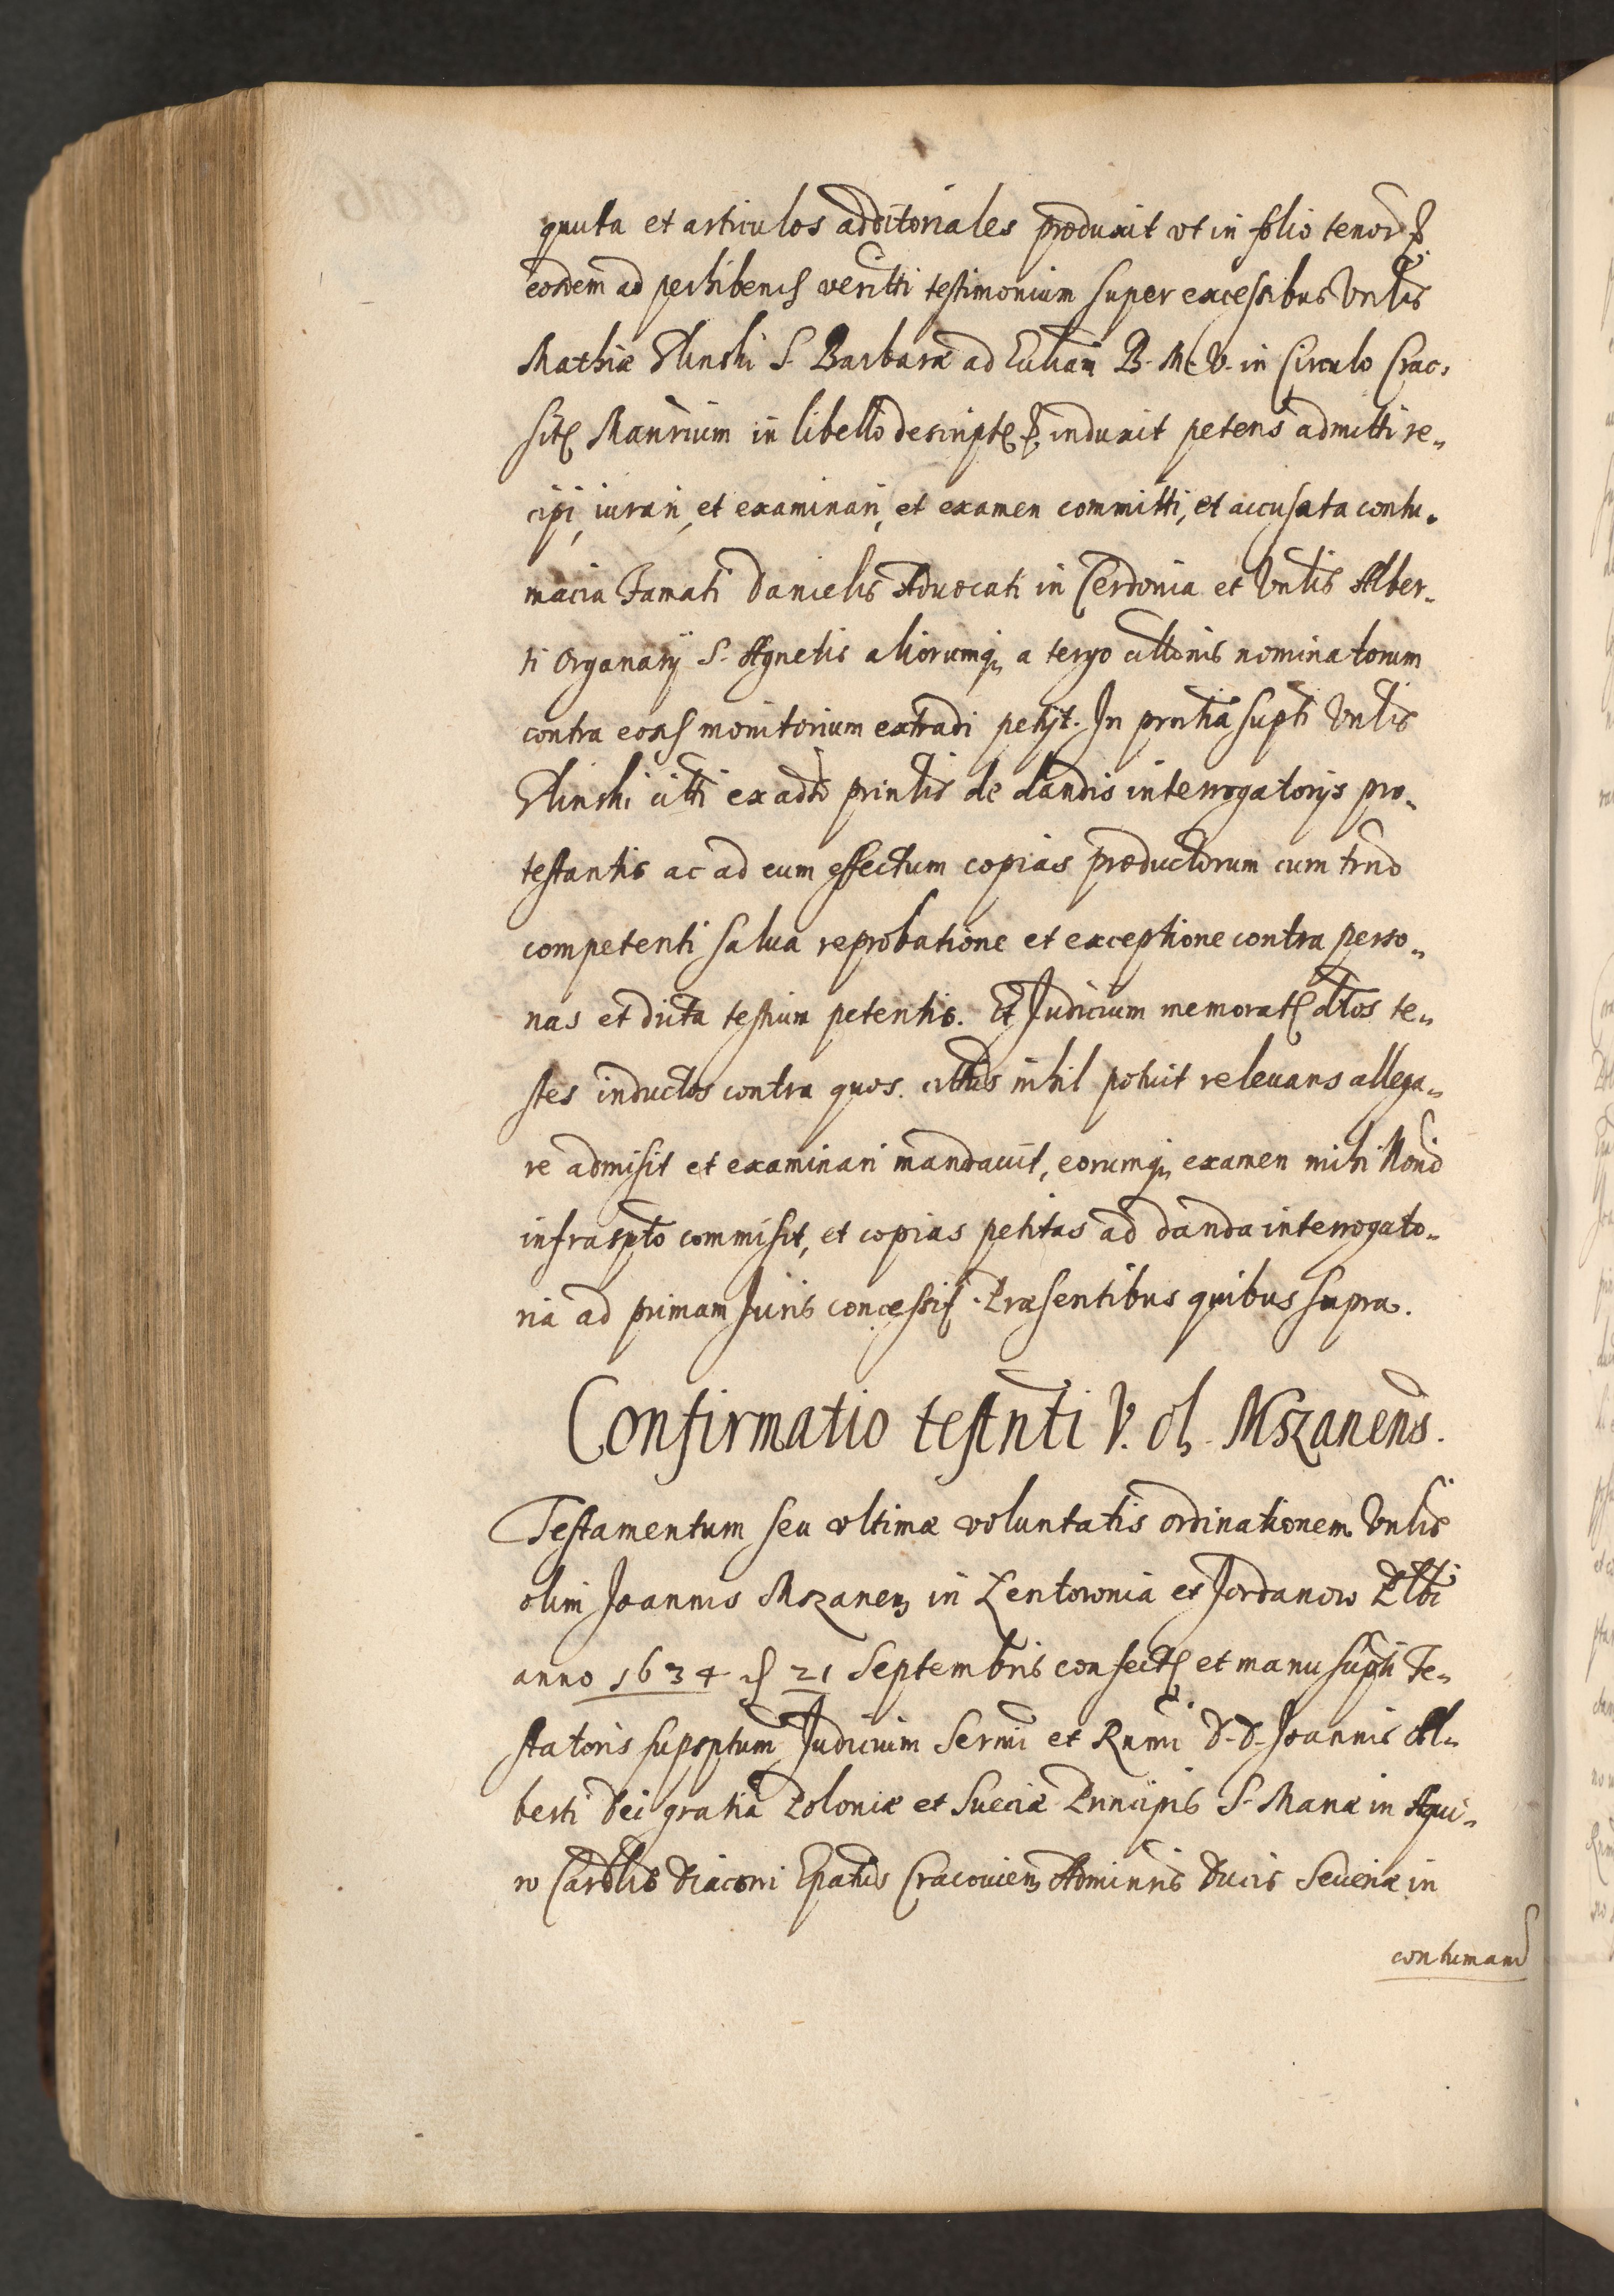 quuta et articulos additoriales produxit vt in folio tenor
eosdem ad perhibend veritti testimonium super excessibus Vnlis
Mathiæ Glinski S. Barbaræ ad Eccliam B. M. V. in Circulo Crac.
sit Manrium in libello descript induxit petens admitti re„
cipi, iurari, et examinari, et examen committi, et accusata contu„
macia Famati Danielis Aduocati in Cerdonia et Vnlis Alber„
ti Organarij S. Agnetis aliorumq, a tergo cittonis nominatorum
contra eosd monitorium extradi petijt. In prntia supti Vnlis
Glinski citti ex adto prinlis de dandis interrogatorijs pro„
testantis ac ad eum effectum copias productorum cum trno
competenti salua reprobatione et exceptione contra perso„
nas et dicta testium petentis. Et Judicium memorat dtos te„
stes inductos contra quos. cittus nihil potuit releuans allega„
re admisit et examinari mandauit, eorumq, examen mihi Norio
infraspto commisit, et copias petitas ad danda interrogato„
ria ad primam Juris concessit. Præsentibus quibus supra.
Confirmatio testnti V. ol. Mszanens.
Testamentum seu vltimæ voluntatis ordinationem Vnlis
olim Joannis Mszanen in Lentownia et Jordanow Plbi
anno 1634 d 21 Septembris confect et manu supti Te„
statoris supsptum Judicium Sermi et Rnmi D. D. Joannis Al„
berti Dei gratia Poloniæ et Sueciæ Principis S. Mariæ in Aqui„
ro Cardlis Diaconi Epatus Cracouien Adminris Ducis Seueriæ in
contumam